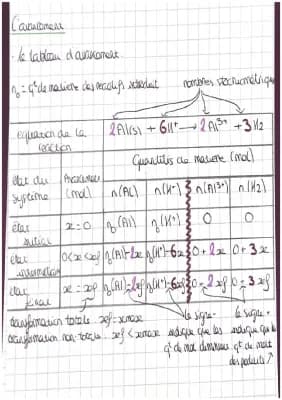 L'avancement
• le tableau d'avancement
n₀ = qᵗé de matière des réactifs introduit
nombres stœchiométriques
équation de la réaction
2Al(s) + 6H⁺ → 2Al³⁺ + 3H₂
Quantités de matière (mol)
état du système
Avancement (mol)
n(Al)
n(H⁺)
n(Al³⁺)
n(H₂)
état initial
x = 0
n₀(Al)
n₀(H⁺)
0
0
état intermédiaire
0 < x < xf
n₀(Al)-2x
n₀(H⁺)-6x
0+2x
0+3x
état final
x = xf
n₀(Al)-2xf
n₀(H⁺)-6xf
0-2xf
0+3xf
transformation totale: xf = xmax
transformation non-totale: xf < xmax
le signe - indique que les qᵗé de mat diminuent
le signe + indique que la qᵗé de mat des produits ↗